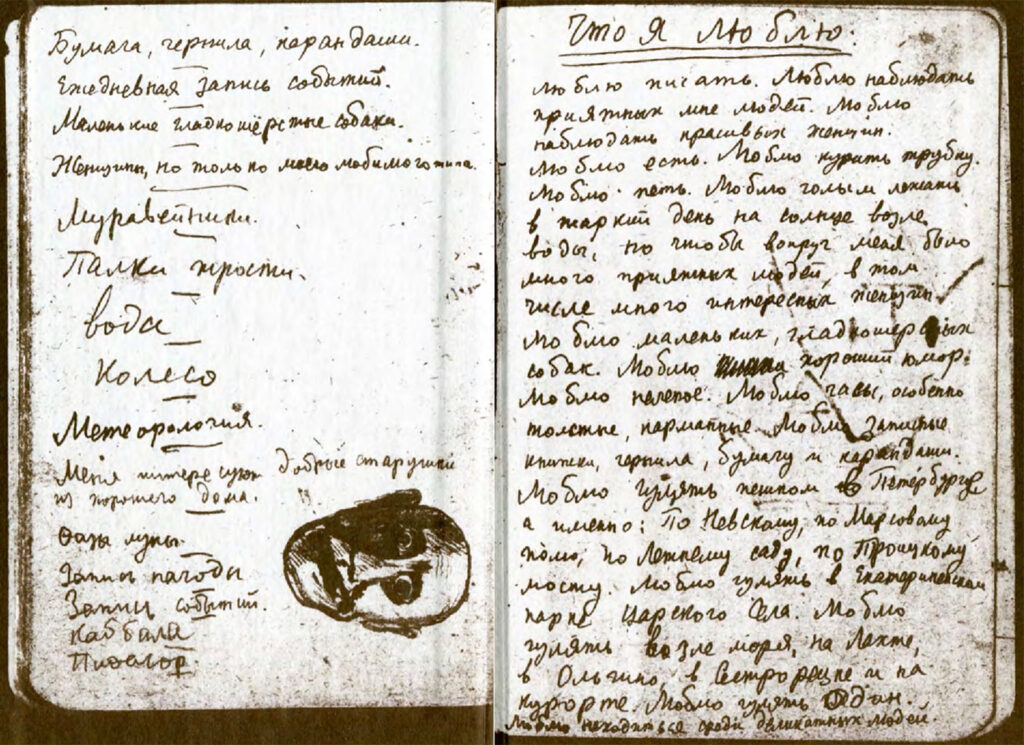 Бумага, чернила, карандаши.
Ежедневная запись событий.
Маленькие гладкошёрстные собаки.
Женщины, но только моего любимого типа.
Муравейники.
Палки трости.
вода
Колесо
Метеорология.
Меня интересуют добрые старушки
из хорошего дома.
Фаза луны.
Запись пагоды
Запись событий.
Каббала
Пифагор.
Что я люблю.
Люблю писать. Люблю наблюдать
приятных мне людей. Люблю
наблюдать красивых женщин.
Люблю есть. Люблю курить трубку.
Люблю петь. Люблю голым лежать
в жаркий день на солнце возле
воды, но чтобы вокруг меня было
много приятных людей, в том
числе много интересных женщин.
Люблю маленьких, гладкошерстных
собак. Люблю хороший юмор.
Люблю нелепое. Люблю часы, особенно
толстые, карманные. Люблю записные
книжки, чернила, бумагу и карандаши.
Люблю гулять пешком в Петербурге
а именно: По Невскому, по Марсовому
полю, по Летнему саду, по Троицкому
мосту. Люблю гулять в Екатерининском
парке Царского Села. Люблю
гулять возле моря, на Лахте,
в Ольгино, в Сестрорецке и на
курорте. Люблю гулять один.
Люблю находиться среди деликатных людей.